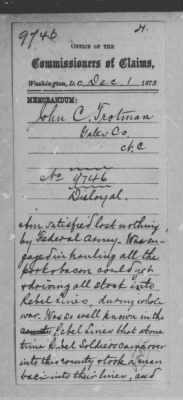 9746
H.
OFFICE OF THE
Commissioners of Claims,
Washington, D. C., Dec. 1 1873
MEMORANDUM:
John C. Trotman
Gates Co.
N.C
No 9746
Disloyal.
Am satisfied lost nothing
by Federal Army. Was en-
gaged in hauling all the
pork & bacon could get
& driving all stock into
Rebel Lines, during whole
war. Was so well known in the
county Rebel Lines that at one
time Rebel Soldiers came over
into this county & took men
back into their lines, and